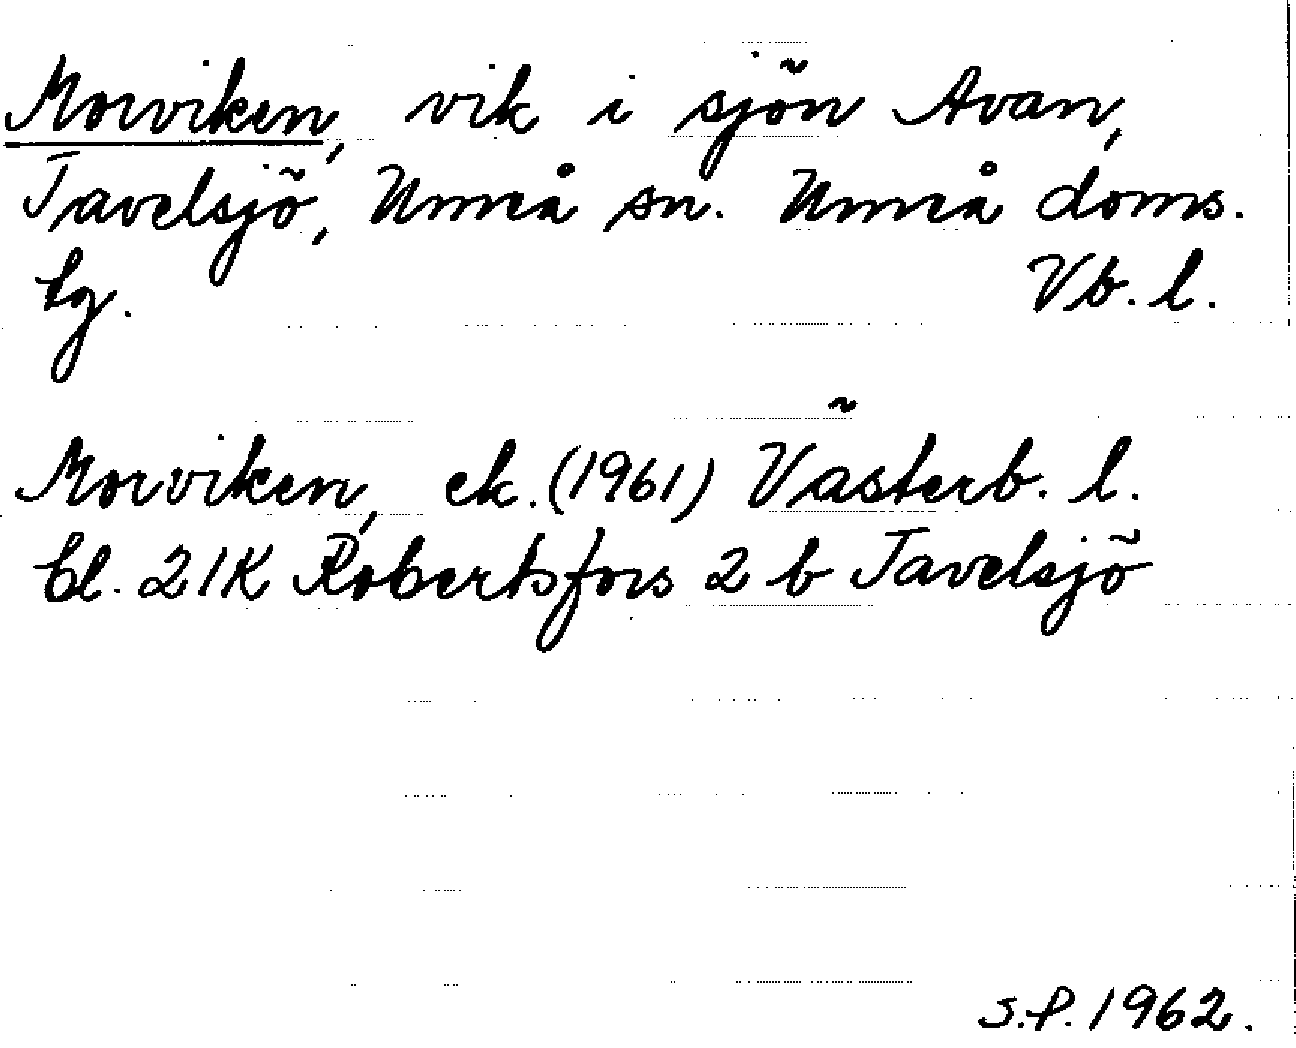 Morviken, vik i sjön Avan,
Tavelsjö, Umeå sn. Umeå doms.
tg. Vb. l.
Morviken, ek. (1961) Västerb. l.
bl. 21K Robertsfors 2 b Tavelsjö
S.P. 1962.